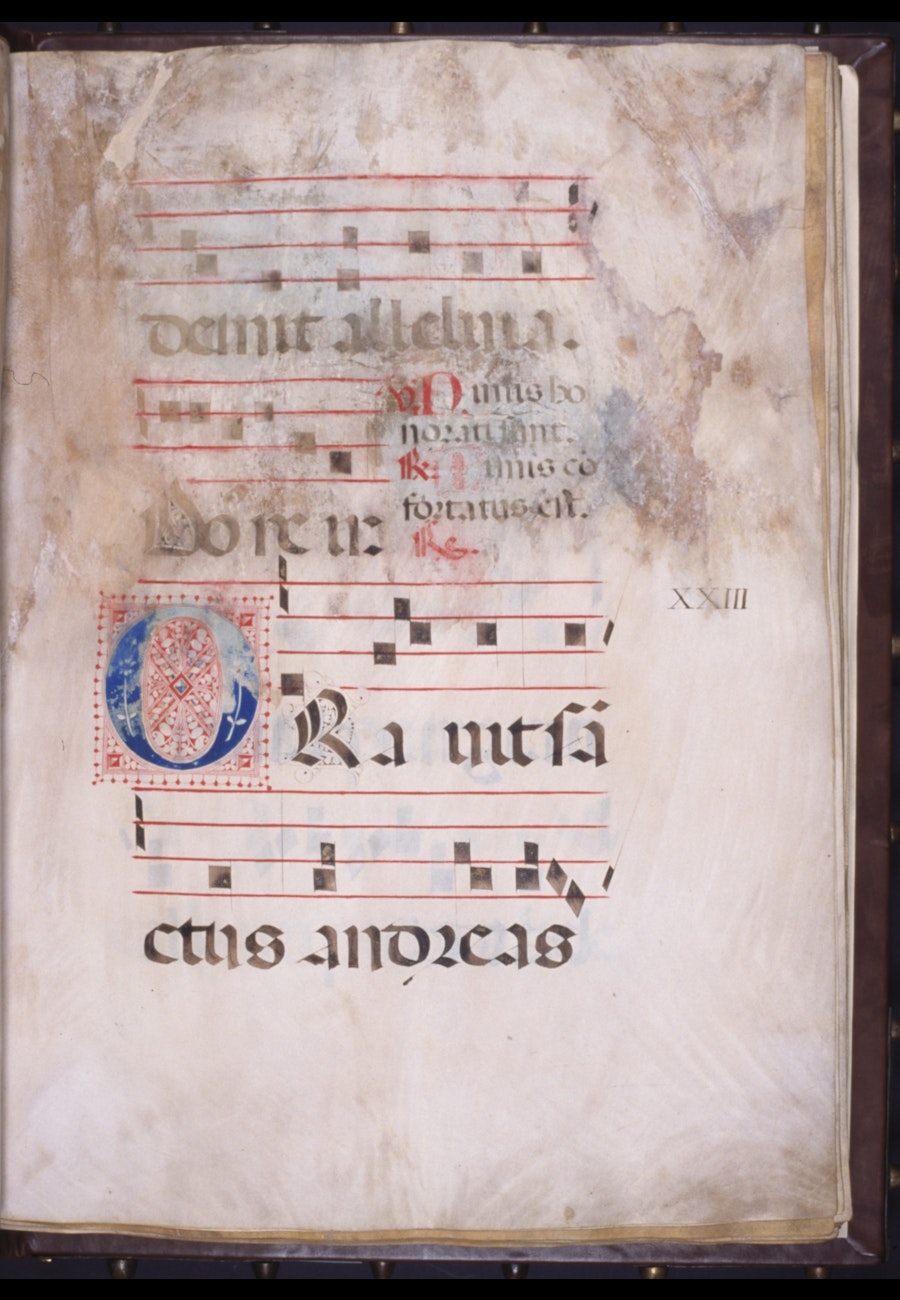 demit alleluia.
℣. Nimis ho
norati sunt.
℟. Nimis cō
fortatus est.
Dom ir: ℟.
XXIII
ORa uit sā
ctus andreas